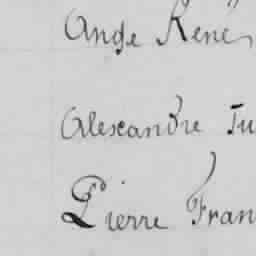 Ange René
Alexandre Ju
Pierre Fran